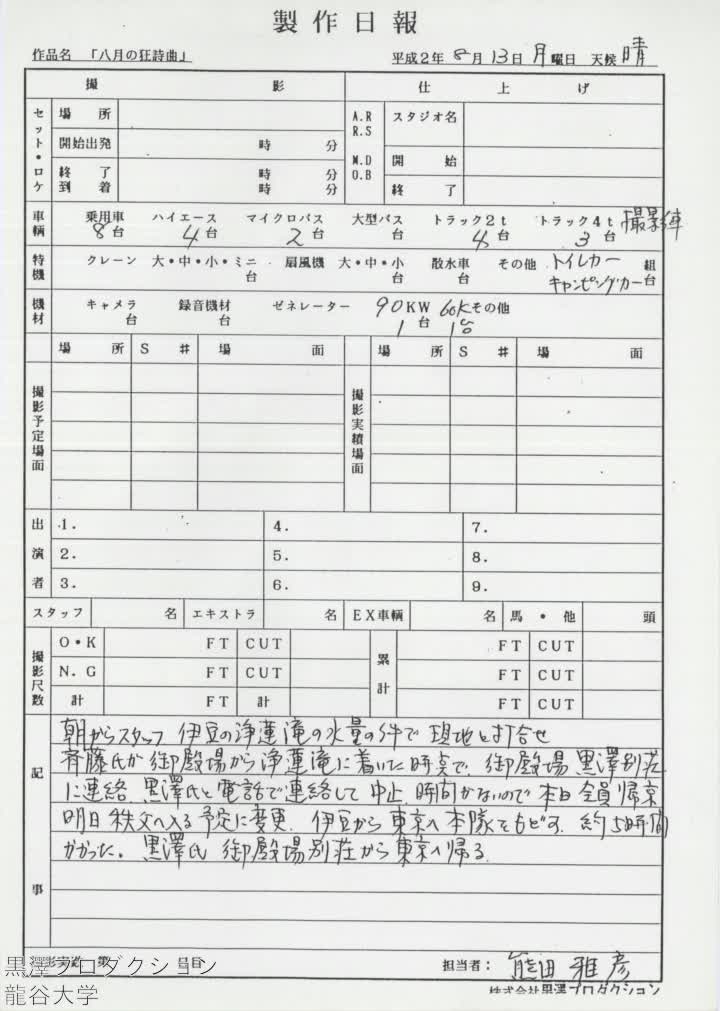 製作日報
作品名 「八月の狂詩曲」 平成2年 8月13日 月曜日 天候 晴
撮 影 仕 上 げ
セット・ロケ 場 所 A.R R.S スタジオ名
開始出発 時 分 M.D O.B 開 始
終 了 時 分 終 了
到 着 時 分
車輌 乗用車 8台 ハイエース 4台 マイクロバス 2台 大型バス 台 トラック2t 4台 トラック4t 3台 撮影車
特機 クレーン 大・中・小・ミニ 台 扇風機 大・中・小 台 散水車 台 その他 トイレカー 組
キャンピングカー 台
機材 キャメラ 台 録音機材 台 ゼネレーター 90KW 1台 60K 1台 その他
場 所 S # 場 面 場 所 S # 場 面
撮影予定場面 撮影実績場面
出演者 1. 4. 7.
2. 5. 8.
3. 6. 9.
スタッフ 名 エキストラ 名 EX車輌 名 馬・他 頭
撮影尺数 O・K FT CUT 累計 FT CUT
N.G FT CUT FT CUT
計 FT 計 FT CUT
記事
朝からスタッフ 伊豆の浄蓮滝の水量の件で 現地と打合せ
斉藤氏が御殿場から浄蓮滝に着いた時点で、御殿場 黒澤別荘
に連絡 黒澤氏と電話で連絡して 中止 時間がないので 本日 全員帰京
明日 秩父へ入る予定に変更. 伊豆から東京へ本隊をもどす. 約5時間
かかった。黒澤氏 御殿場別荘から東京へ帰る.
撮影実績 第 号目 担当者: 熊田雅彦
株式会社黒澤プロダクション
黒澤プロダクション
龍谷大学